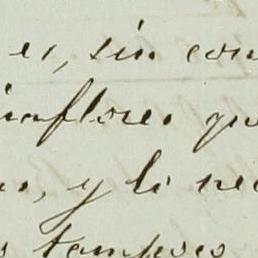 es, sin con
inaflores qu
as, y lo nec
s tampoco